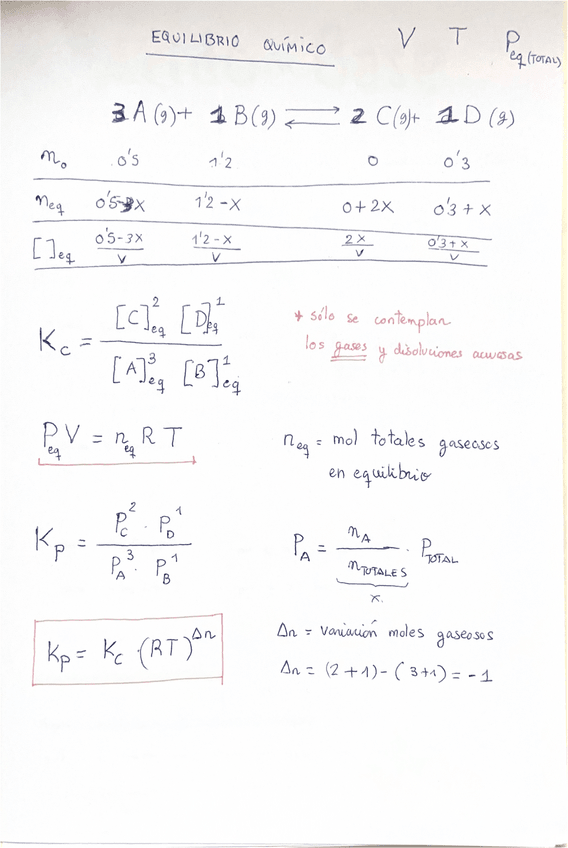 EQUILIBRIO QUÍMICO V T Peq (TOTAL)
3 A (g) + 1 B (g) ⇌ 2 C (g) + 1 D (g)
n₀ 0'5 1'2 0 0'3
neq 0'5-3X 1'2-X 0+2X 0'3+X
[ ]eq (0'5-3X)/V (1'2-X)/V 2X/V (0'3+X)/V
Kc = [C]²eq [D]¹eq / [A]³eq [B]¹eq
* sólo se contemplan
los gases y disoluciones acuosas
Peq V = neq R T
neq = mol totales gaseosos
en equilibrio
Kp = Pc² · PD¹ / PA³ · PB¹
PA = nA / nTOTALES · PTOTAL
x.
Kp = Kc · (RT)^Δn
Δn = variación moles gaseosos
Δn = (2+1) - (3+1) = -1